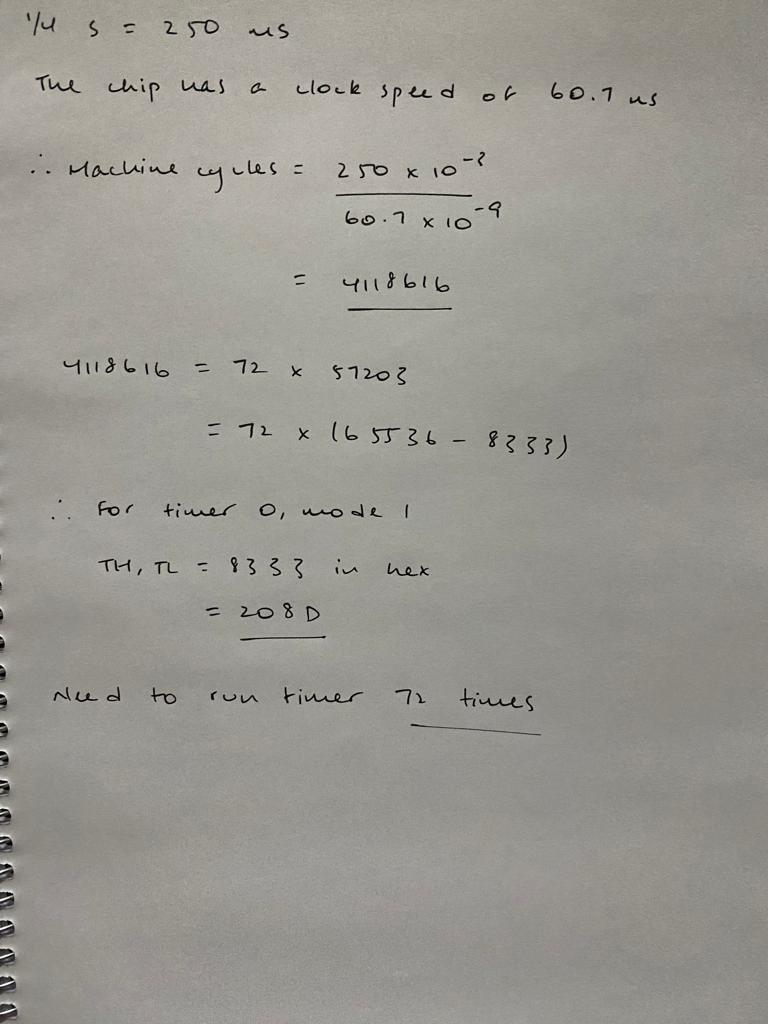 1/4 s = 250 ms
The chip has a clock speed of 60.7 ns
∴ Machine cycles = 250 × 10⁻³
60.7 × 10⁻⁹
= 4118616
4118616 = 72 × 57203
= 72 × (65536 - 8333)
∴ For timer 0, mode 1
TH, TL = 8333 in hex
= 208D
Need to run timer 72 times